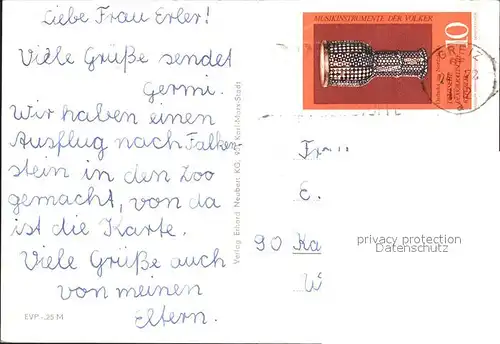 Liebe Frau Erler!
Viele Grüße sendet
Germi.
Wir haben einen
Ausflug nach Falken-
stein in den Zoo
gemacht, von da
ist die Karte.
Viele Grüße auch
von meinen
Eltern.
EVP -.25 M
Verlag Erhard Neubert KG, Karl-Marx-Stadt
MUSIKINSTRUMENTE DER VÖLKER
10
GREIZ
Frau
E.
90 Ka
W
privacy protection
Datenschutz